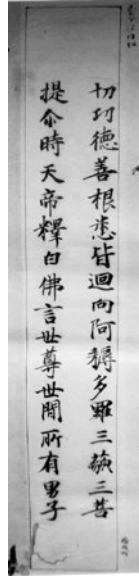 切功德善根悉皆迴向阿耨多羅三藐三菩
提尒時天帝釋白佛言世尊世間所有男子